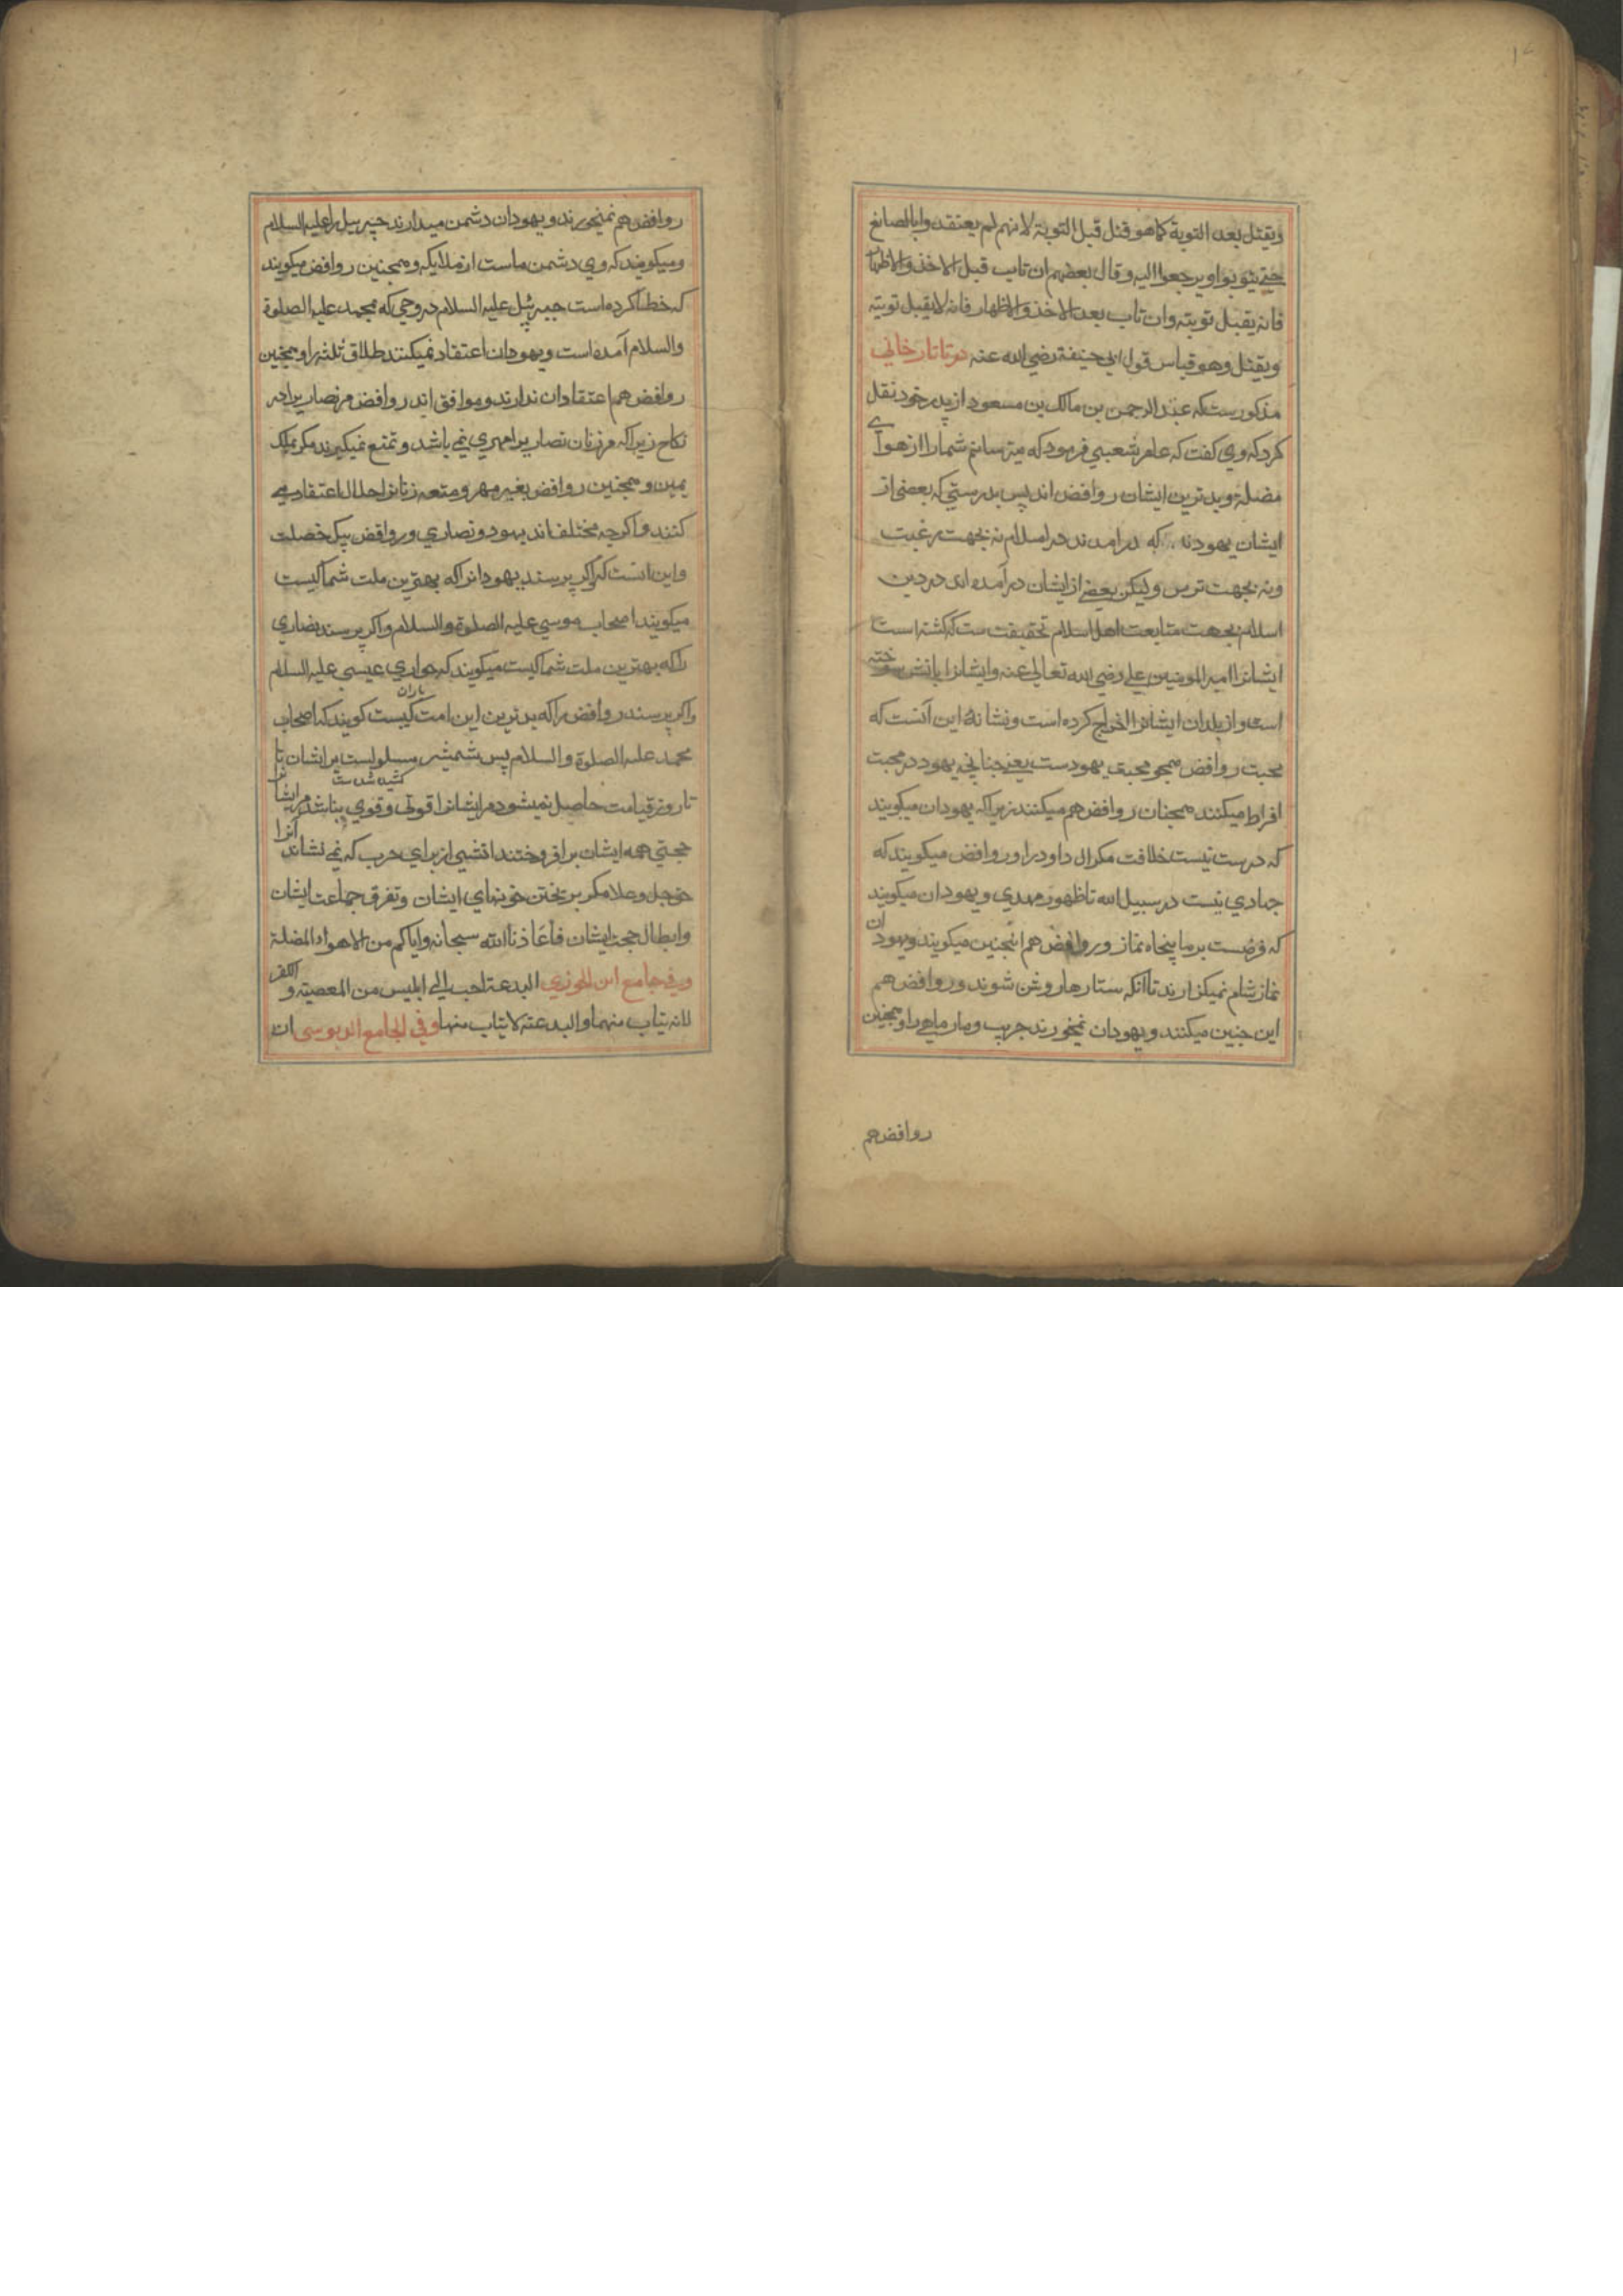 ويقتل بعد التوبة كما هو قتل قبل التوبة لانهم لم يعتقدوا بالصانع
حتى يتوبوا ويرجعوا اليه وقال بعضهم ان تاب قبل الاخذ والاظهار
فانه يقبل توبته وان تاب بعد الاخذ والاظهار فانه لا يقبل توبته
ويقتل وهو قياس قول ابي حنيفة رضي الله عنه در تاتارخاني
مذكورست كه عبد الرحمن بن مالك بن مسعود از پدر خود نقل
كرد كه وي كفت كه عامر شعبي فرمود كه ميترسانم شمارا از هواي
مضله و بدترين ايشان روافض اند پس بدرستي كه بعضي از
ايشان يهودند كه درامدند در اسلام نه بجهت رغبت
ونه بجهت ترس وليكن بعضي از ايشان درآمده اند در دين
اسلام بجهت متابعت اهل اسلام تحقيقت ست كه كشته است
ايشانرا امير المومنين علي رضي الله تعالي عنه وايشانرا باتش سوخته
است و از بلدان ايشانرا اخراج كرده است و نشانهٔ اين آنست كه
محبت روافض همچو محبت يهودست يعني چنانچه يهود در محبت
افراط ميكنند همچنان روافض هم ميكنند زيراكه يهودان ميكويند
كه درست نيست خلافت مكر ال داود را و روافض ميكويند كه
جهادي نيست در سبيل الله تا ظهور مهدي و يهودان ميكويند
كه فرضست بر ما پنجاه نماز و روافض هم اينچنين ميكويند ويهودان
نماز شام نميكزارند تا آنكه ستارها روشن شوند و روافض هم
اين چنين ميكنند و يهودان نميخورند جريب و مارماهي را وهمچنين
روافض هم
روافض هم نميخورند و يهودان دشمن ميدارند جبرييل را عليه السلام
وميكويند كه وي دشمن ماست از ملايكه وهمچنين روافض ميكويند
كه خطا كرده است جبرئيل عليه السلام در وحي كه بمحمد عليه الصلوة
والسلام آمده است و يهودان اعتقاد نميكنند طلاق ثلثه را وهمچنين
روافض هم اعتقاد ان ندارند و موافق اند روافض مر نصاريرا در
نكاح زيراكه مر زنان نصاريرا مهري نمي باشد و تمتع نميكيرند مكر بملك
يمين و همچنين روافض بغير مهر و متعه زنانرا حلال اعتقاد مي
كنند و اكرچه مختلف اند يهود و نصاري و روافض بيك خصلت
واين انست كه اكر پرسند يهودانرا كه بهترين ملت شما كيست
ميكويند اصحاب موسي عليه الصلوة والسلام و اكر پرسند نصاري
را كه بهترين ملت شما كيست ميكويند كه حواري عيسي عليه السلام
واكر پرسند روافض را كه بدترين اين امت كيست كويند كه ياران اصحاب
محمد عليه الصلوة والسلام پس شمشير مسلولست بر ايشان تا
كشيده شده ست
تا روز قيامت حاصل نميشود مر ايشانرا قوتي و قوي نباشد مر ايشانرا
حجتي همه ايشان برافروختند اتشي از براي حرب كه نمي نشاند آنرا
خداي جل و علا مكر بريختن خونهاي ايشان و تفرق جماعت ايشان
وابطال حجت ايشان فاعاذنا الله سبحانه واياكم من الاهواء المضلة
وفي جامع ابن الجوزي البدعة احب الي ابليس من المعصية والكفر
لانه يتاب منهما والبدعة لا يتاب منها وفي الجامع الدبوسي ان